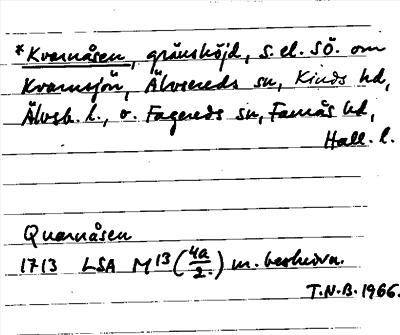 *Kvarnåsen, gränshöjd, S. el. SÖ. om
Kvarnsjön, Älvsereds sn, Kinds hd,
Älvsb. l., o. Fagereds sn, Faurås hd,
Hall. l.
Quarnåsen
1713 LSA M13 (4a/2) m. beskrivn.
T.N.B. 1966.